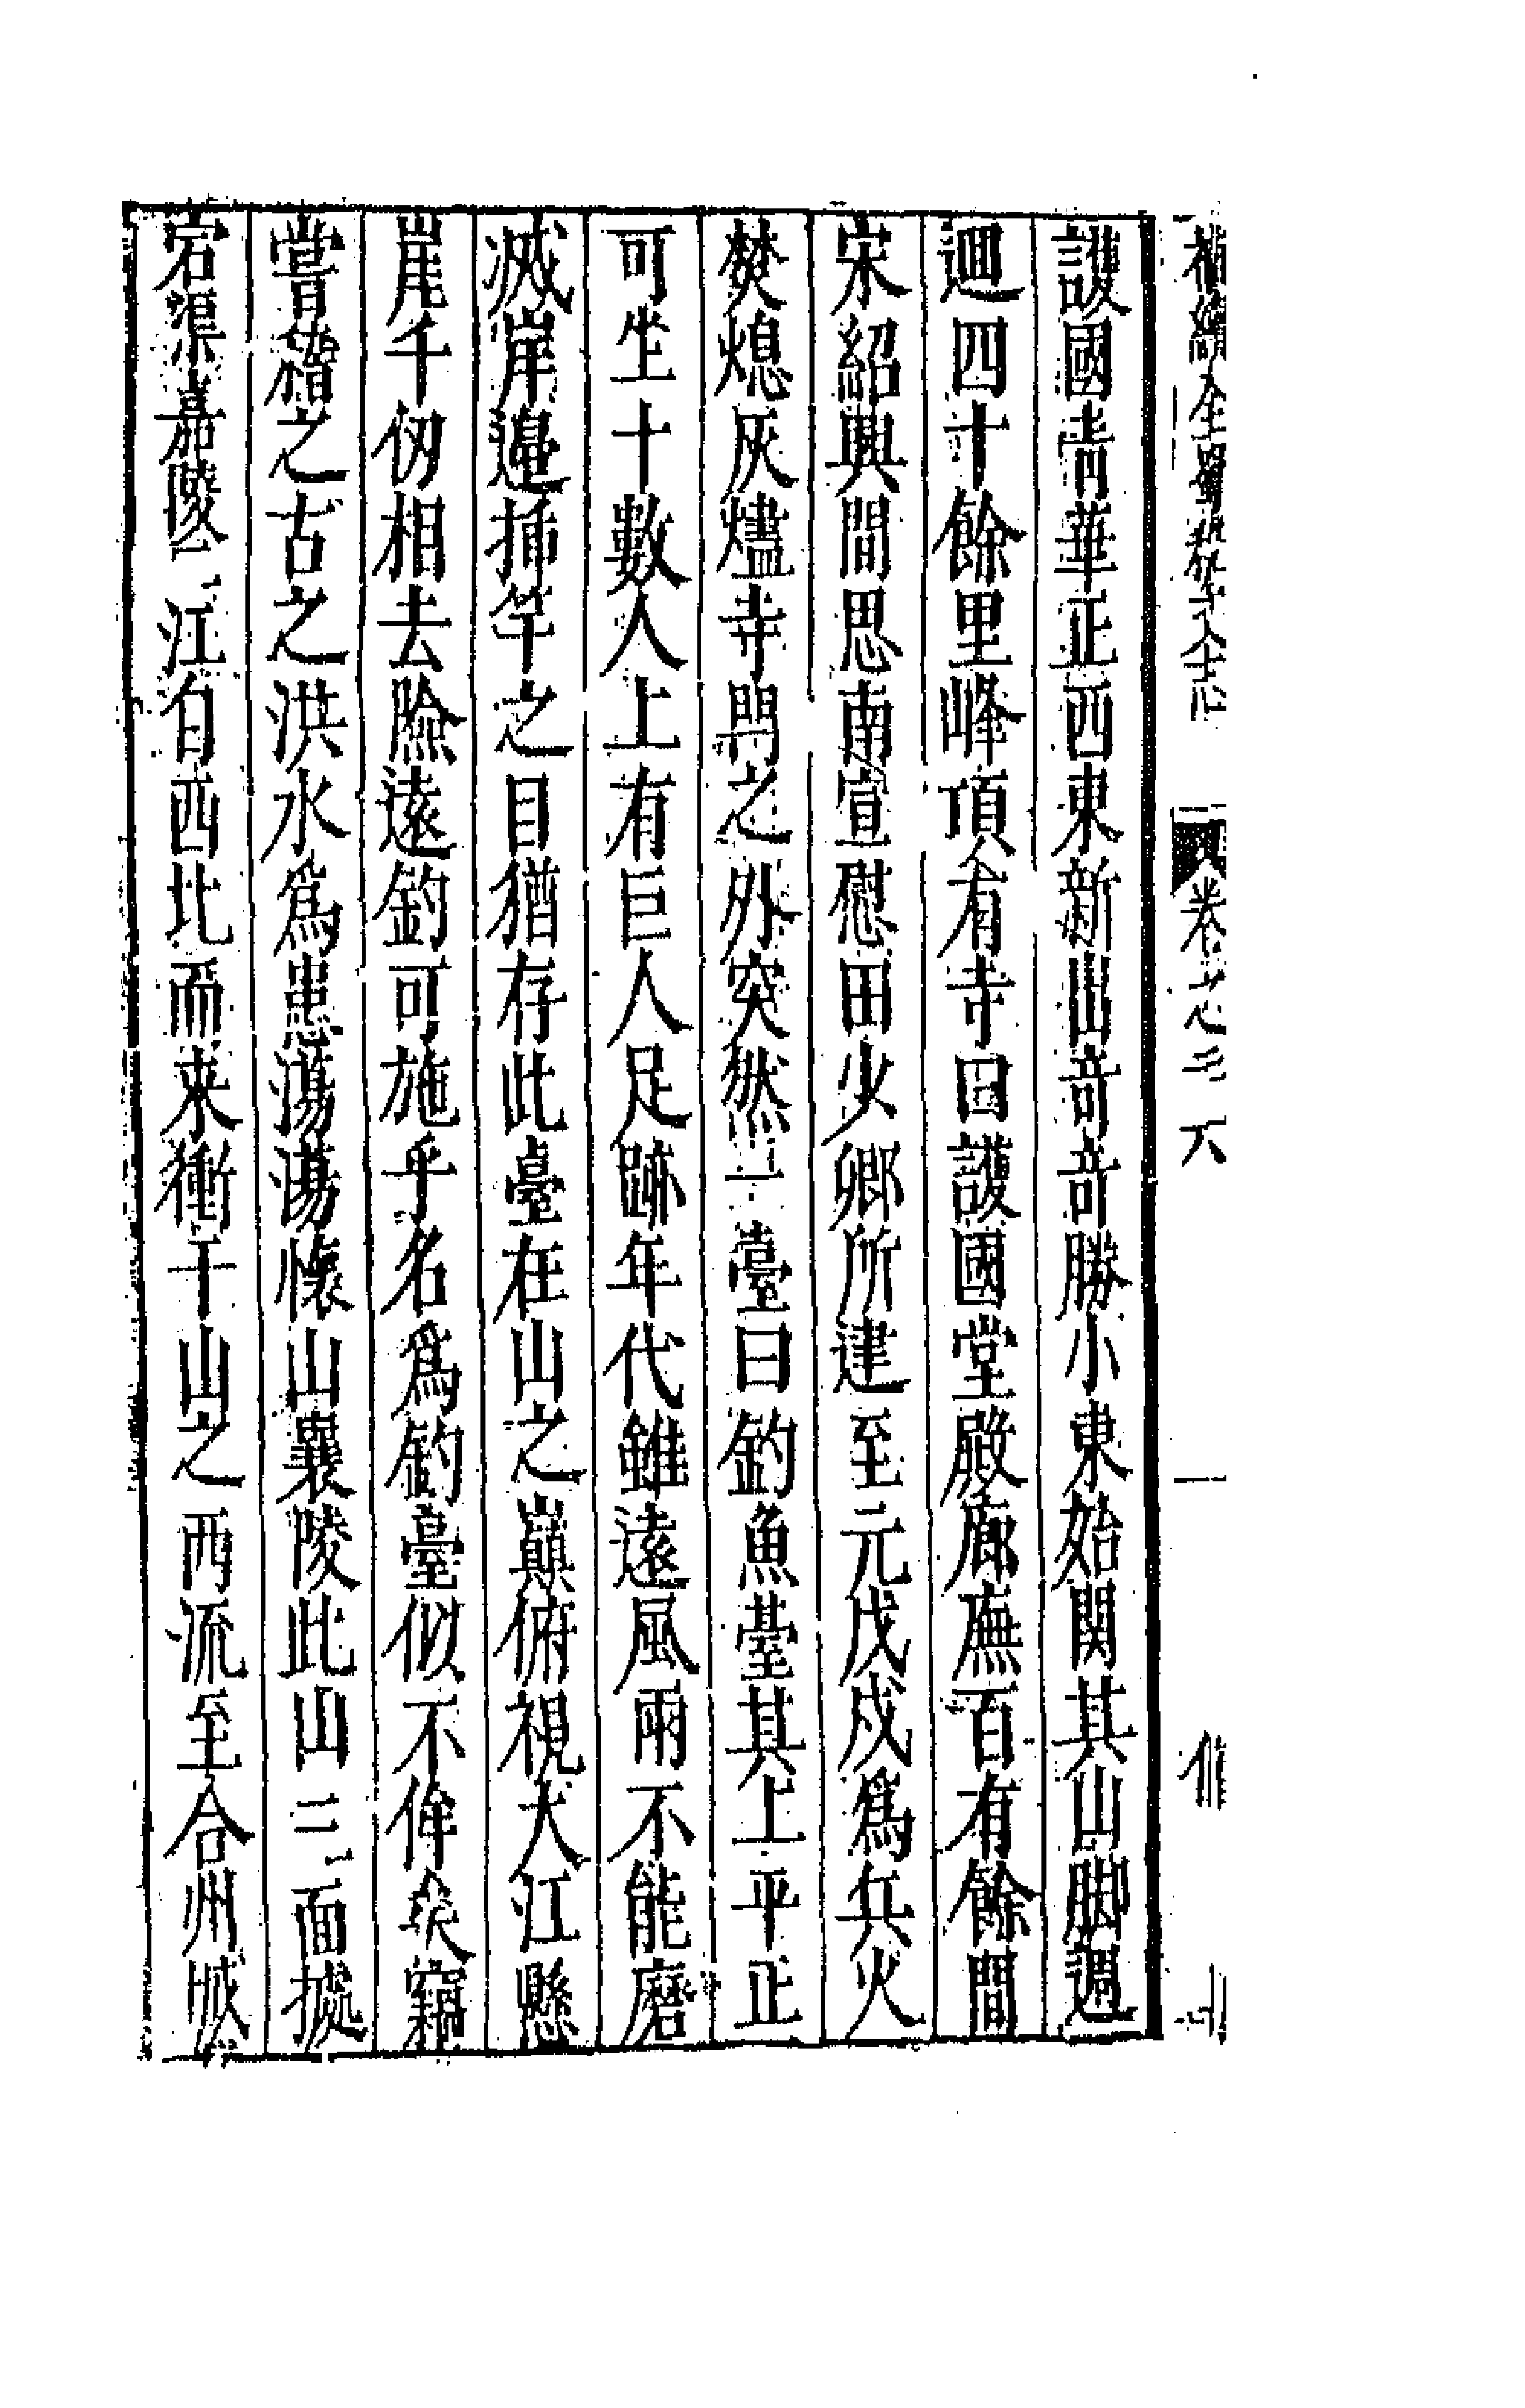 補續全蜀藝文志 卷之三六
護國青華正西東新出奇奇勝小東始関其山脚週
迴四十餘里峰頂有寺曰護國堂殿廊廡百有餘間
宋紹興間思南宣慰田少卿所建至元戊戌為兵火
焚熄灰燼寺門之外突然一臺曰釣魚臺其上平正
可坐十數人上有巨人足跡年代雖遠風雨不能磨
滅岸邊挿竿之目猶存此臺在山之巔俯視大江懸
崖千仞相去險遠釣可施乎名為釣臺似不侔矣竊
嘗稽之古之洪水為患蕩蕩懷山襄陵此山三面據
宕渠嘉陵二江自西北而来衝于山之西流至合州城